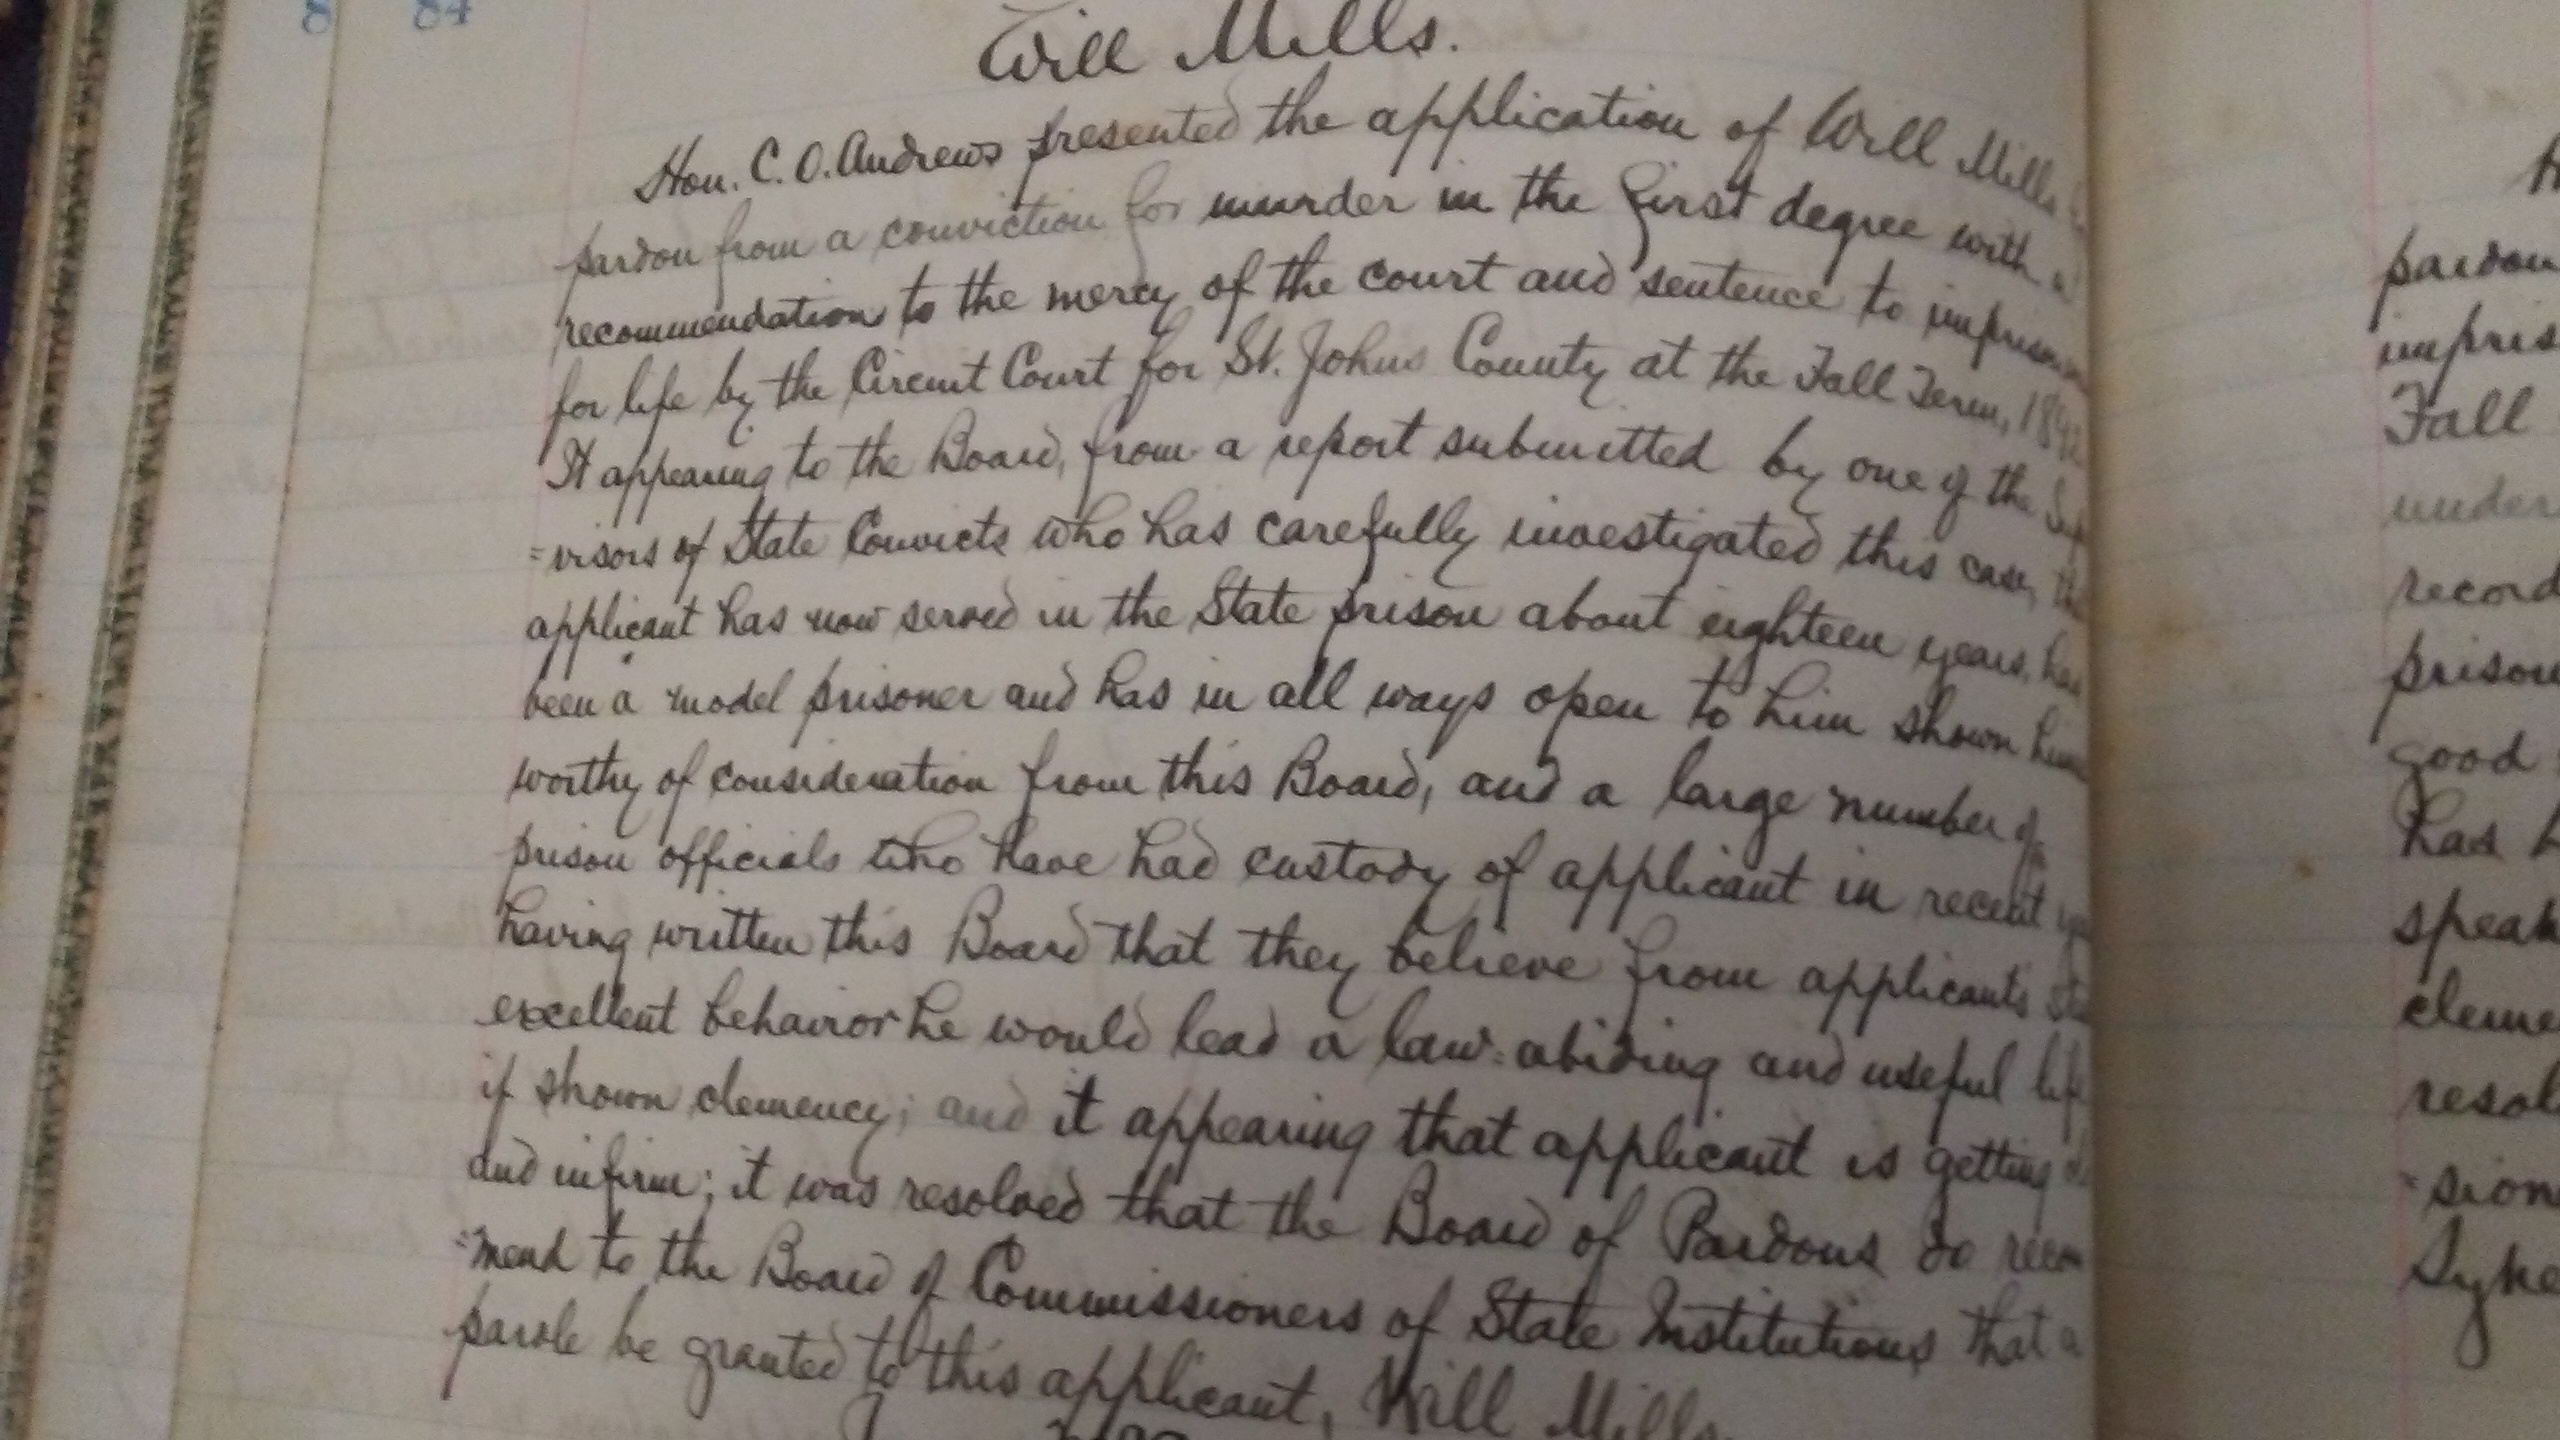 84
Will Mills.
Hon. C. O. Andrews presented the application of Will Mills
pardon from a conviction for murder in the first degree with
recommendation to the mercy of the court and sentence to imprison
for life by the Circuit Court for St. Johns County at the Fall Term, 18
It appearing to the Board, from a report submitted by one of the
=visors of State Convicts who has carefully investigated this case, th
applicant has now served in the State prison about eighteen years, ha
been a model prisoner and has in all ways open to him shown him
worthy of consideration from this Board, and a large number of
prison officials who have had custody of applicant in recent
having written this Board that they believe from applicants
excellent behavior he would lead a law=abiding and useful life
if shown clemency; and it appearing that applicant is getting
and infirm; it was resolved that the Board of Pardons do recom
=mend to the Board of Commissioners of State Institutions that a
parole be granted to this applicant, Will Mills.
pardon
impris
Fall
under
record
prison
good
has b
speak
cleme
resol
=sion
Syke